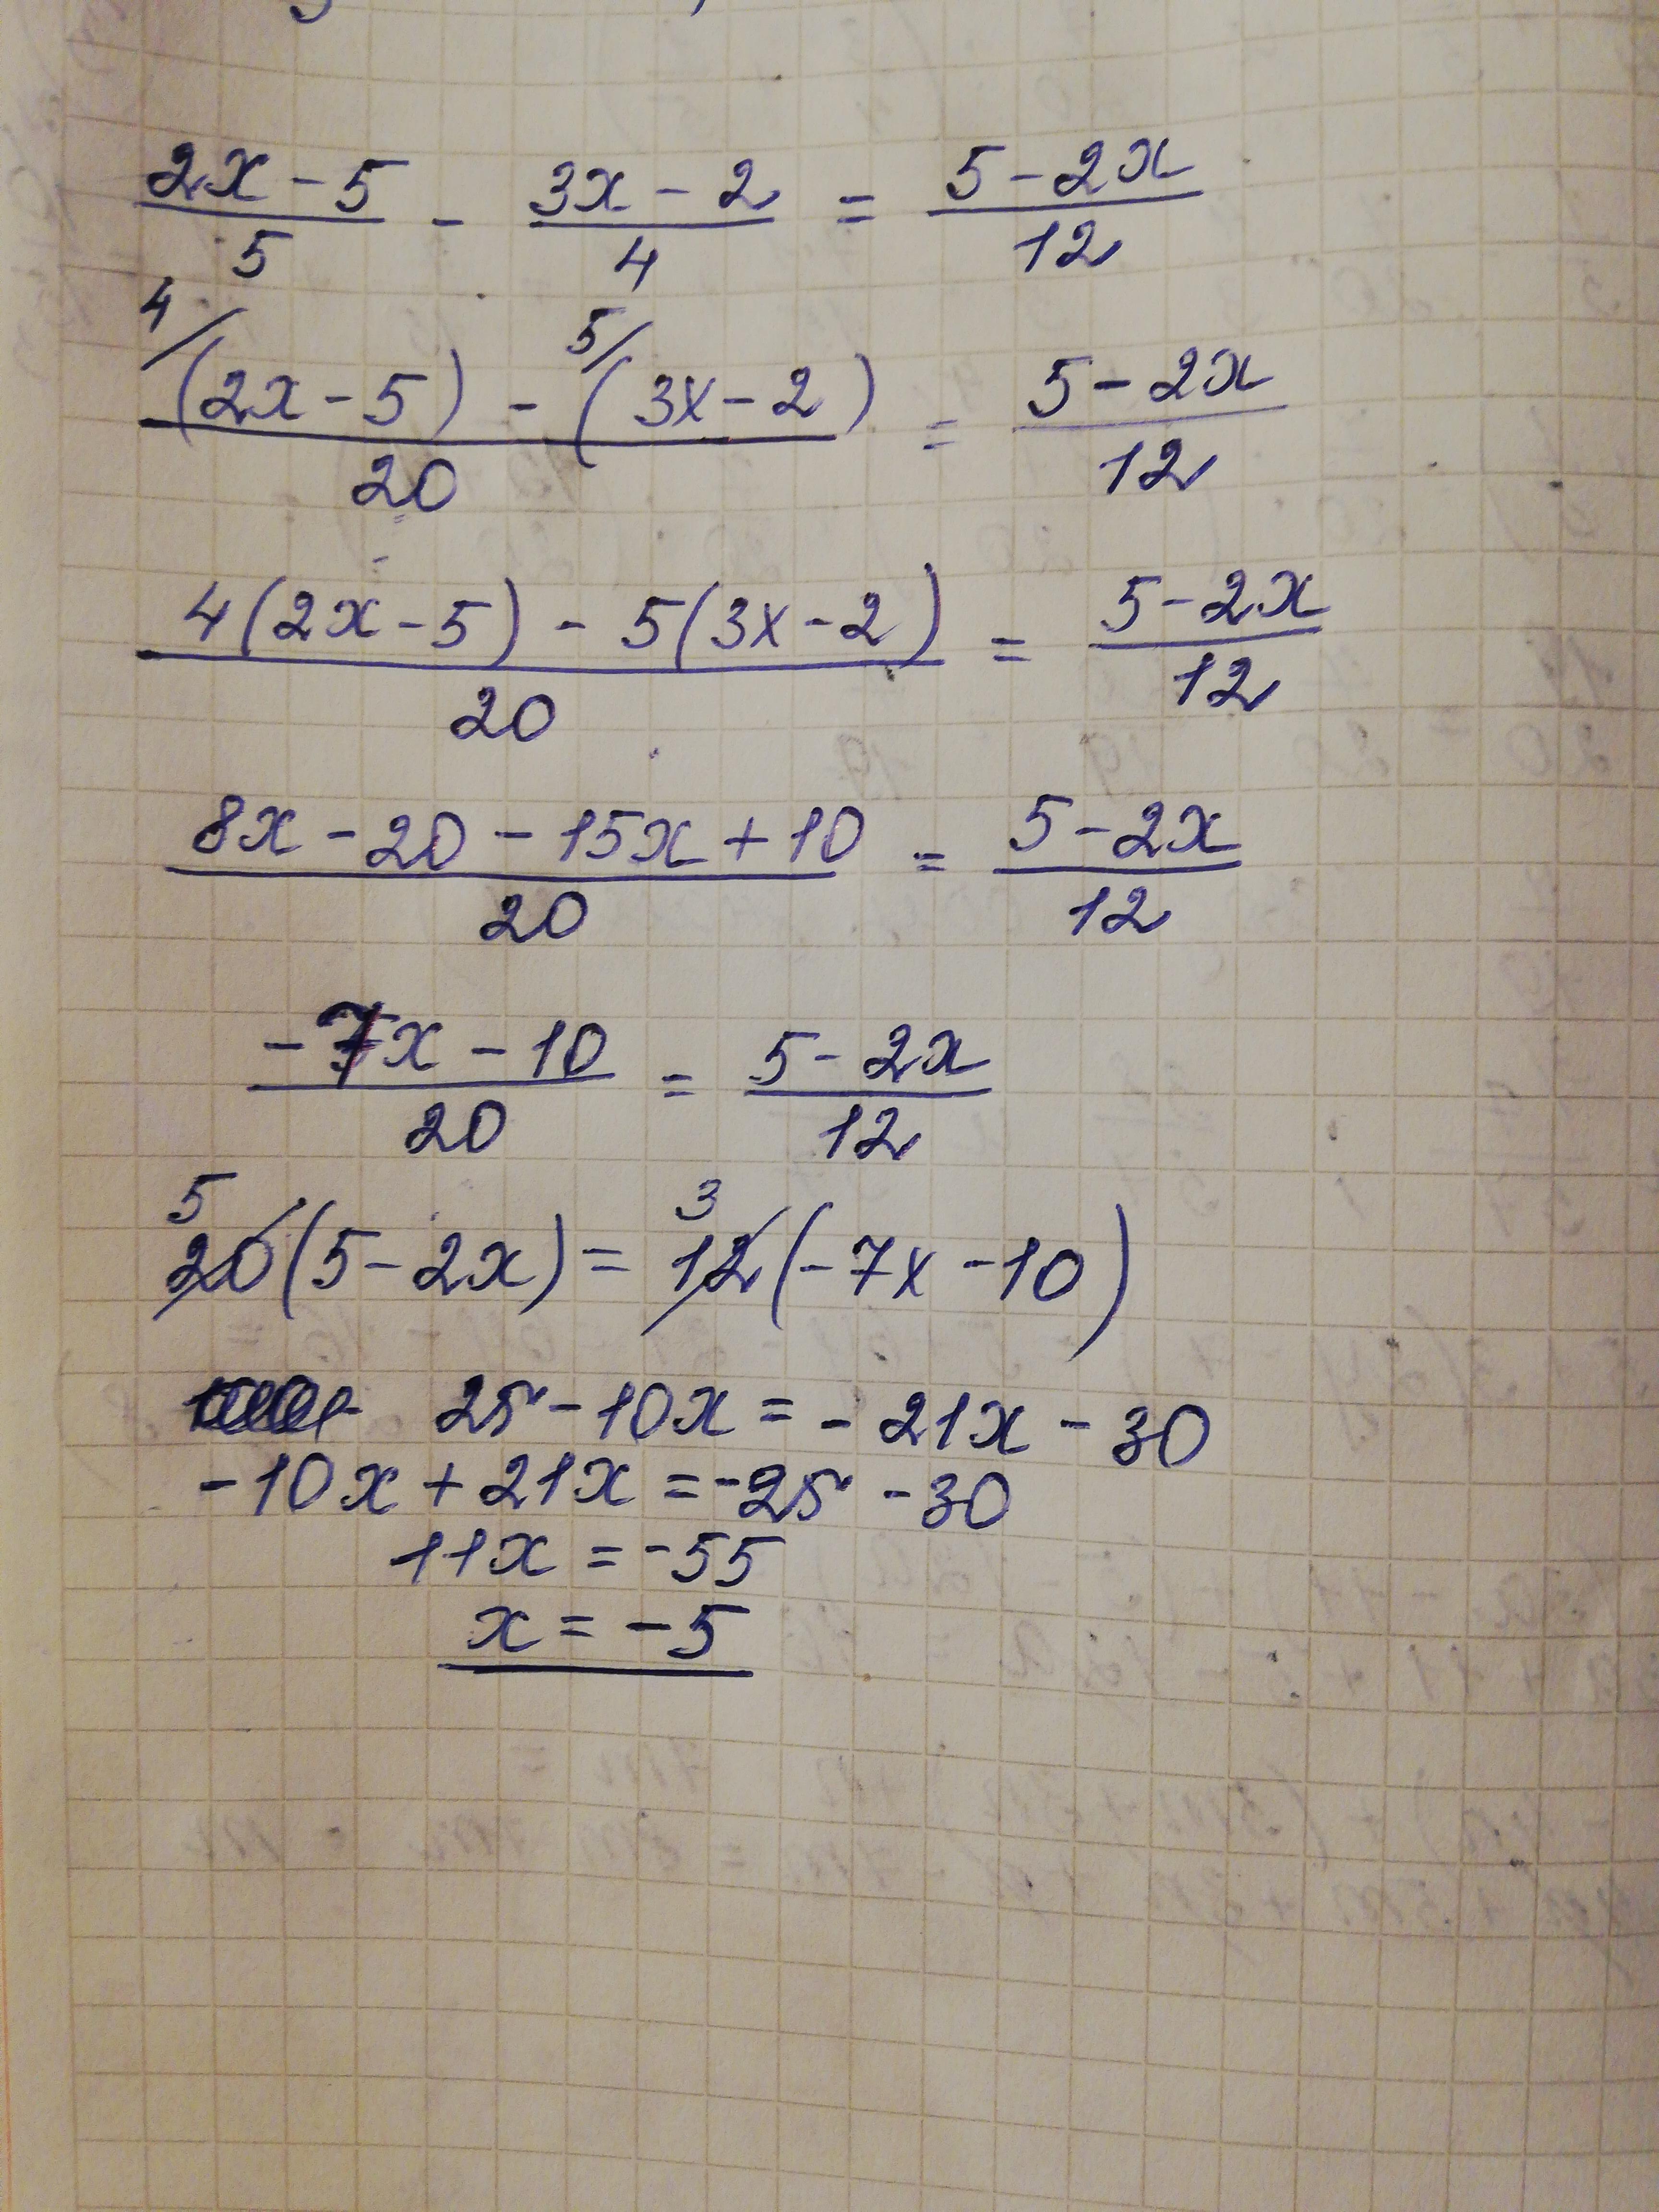 (2x-5)/5 - (3x-2)/4 = (5-2x)/12
(4/(2x-5) - 5/(3x-2))/20 = (5-2x)/12
(4(2x-5) - 5(3x-2))/20 = (5-2x)/12
(8x-20-15x+10)/20 = (5-2x)/12
(-7x-10)/20 = (5-2x)/12
5 3
20(5-2x) = 12(-7x-10)
25-10x = -21x-30
-10x+21x = -25-30
11x = -55
x = -5